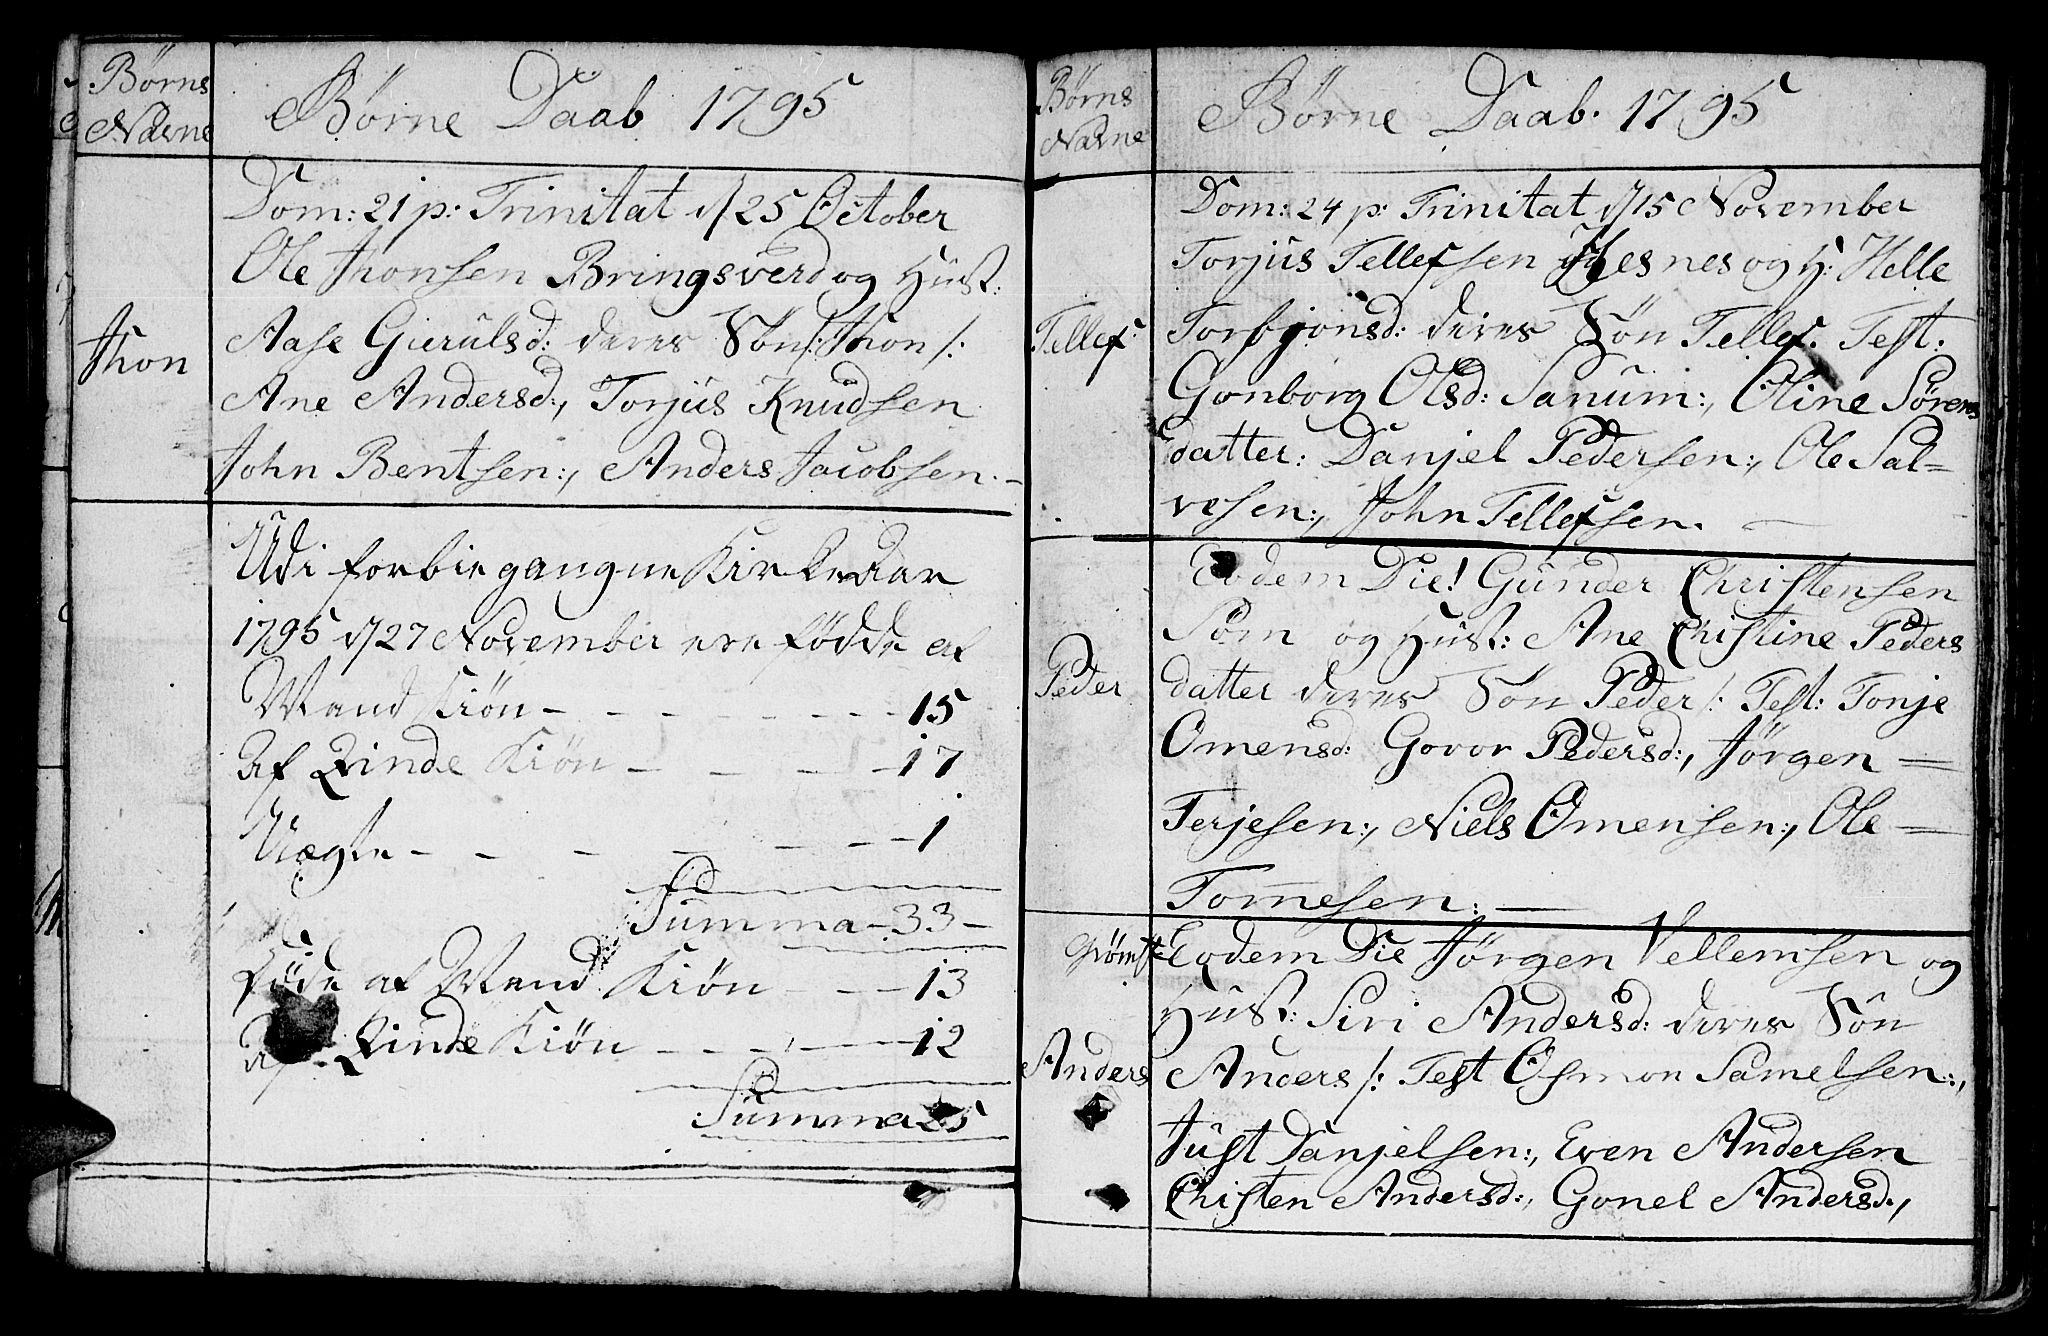 Børns
Navne
Børne Daab 1795
Dom: 21 p: Trinitat d/25 October
Ole Thonsen Bringsverd og Hust:
Thon
Aase Gierulsd: deres Søn /: Thon /:
Ane Andersd:, Torjus Knudsen
John Bentsen:, Anders Jacobsen. –
Udi forbiegangne Kirke Aar
1795 d/27 November ere fødde af
Mand Kiøn - - - - - - - 15
Af Qvinde Kiøn - - - - - 17
Uægte - - - - - - - 1
Summa - 33 -
Døde af Mand Kiøn - - - 13
Af Qvinde Kiøn - - - - - 12
Summa 25
Børns
Navne
Børne Daab. 1795
Dom: 24 p: Trinitat d/15 November
Torjus Tellefsen Hesnes og H: Helle
Tellef
Torbjønsd: deres Søn Tellef. Test:
Gonborg Olsd: Sanum:, Oline Sørens
datter: Danjel Pedersen:, Ole Sal=
vesen:, John Tellefsen. —
Eodem Die! Gunder Christensen
Søm og Hust: Ane Christine Peders
Peder
datter deres Søn Peder /: Test: Tonje
Omensd: Goror Pedersd:, Jørgen =
Terjesen:, Niels Omensen:, Ole =
Tommesen: —
Grømst: Eodem Die Jørgen Vellemsen og
Hust: Siri Andersd: deres Søn
Anders
Anders /: Test Osmon Samelsen:,
Just Danjelsen:, Even Andersen
Christen Andersd:, Gonel Andersd:,